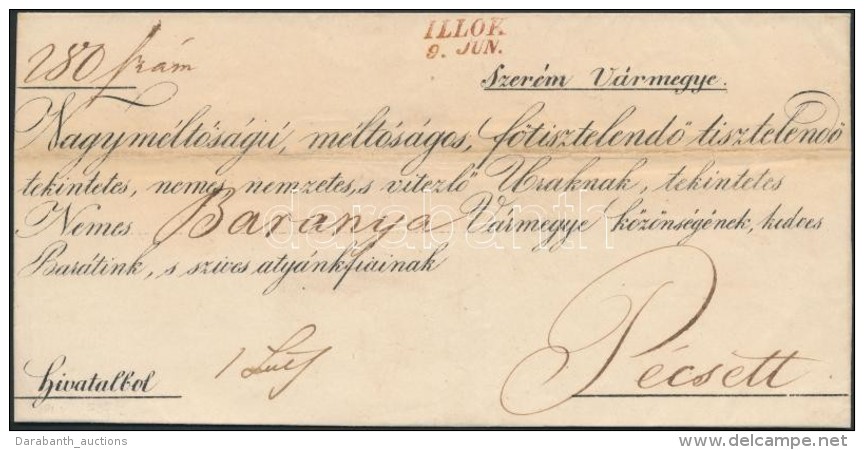 ILLOK
9. JUN.
280 szám
Szerém Vármegye.
Nagyméltóságú, méltóságos, főtisztelendő tisztelendő
tekintetes, nemes, nemzetes, s vitézlő Uraknak, tekintetes
Nemes Baranya Vármegye közönségének, kedves
Barátink, s szives atyánkfiainak
darabanth
Hivatalbol
Pécsett
Darabanth_auctions
www.delcampe.net